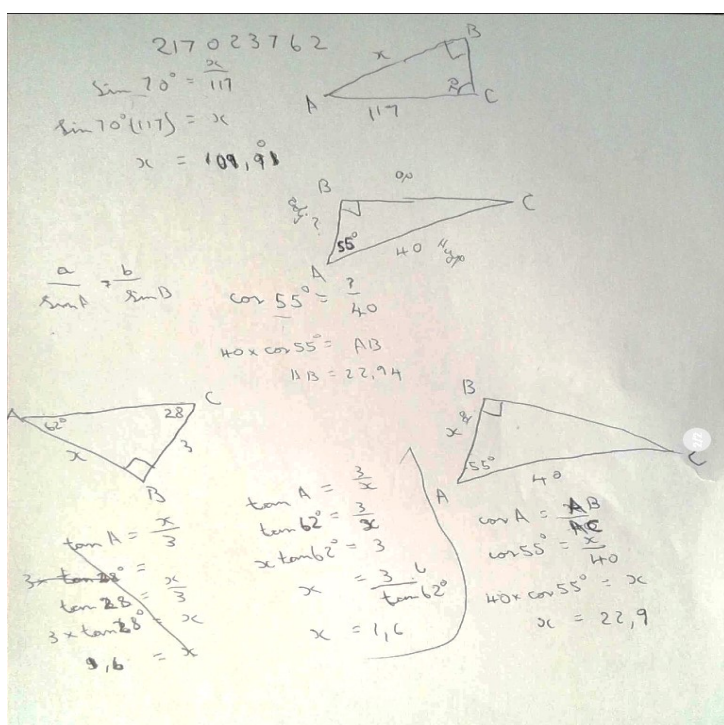 217023762
sin 70° = x/117
sin 70°(117) = x
x = 109,9
A
B
C
x
117
B
C
A
55°
40
hyp
?
a/sin A = b/sin B
cos 55° = ?/40
40 x cos 55° = AB
AB = 22,94
A
62°
28
C
x
3
B
tan A = x/3
3x tan 28° =
tan 28 = x/3
3 x tan 28° = x
1,6 = x
tan A = 3/x
tan 62° = 3/x
x tan 62° = 3
x = 3/tan 62°
x = 1,6
B
x
55°
A
40
C
cos A = AB/AC
cos 55° = x/40
40 x cos 55° = x
x = 22,9